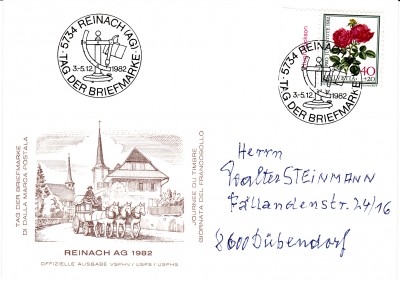 5734 REINACH (AG)
3.-5.12.1982
·TAG DER BRIEFMARKE·
5734 REINACH (AG)
3.-5.12.1982
·TAG DER BRIEFMARKE·
HELVETIA
40
+20
TAG DER BRIEFMARKE
DI DALLA MARCA POSTALA
JOURNEE DU TIMBRE
GIORNATA DEL FRANCOBOLLO
REINACH AG 1982
OFFIZIELLE AUSGABE VSPHV / USPS / USPHS
Herrn
Walter STEINMANN
Fällandenstr. 24/16
8600 Dübendorf